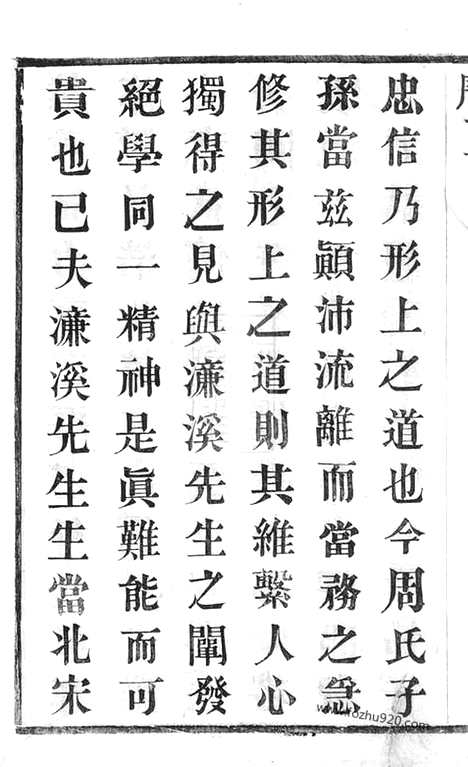 忠信乃形上之道也今周氏子
孫當茲顚沛流離而當務之急
修其形上之道則其維繫人心
獨得之見與濂溪先生之闡發
絕學同一精神是眞難能而可
貴也已夫濂溪先生生當北宋